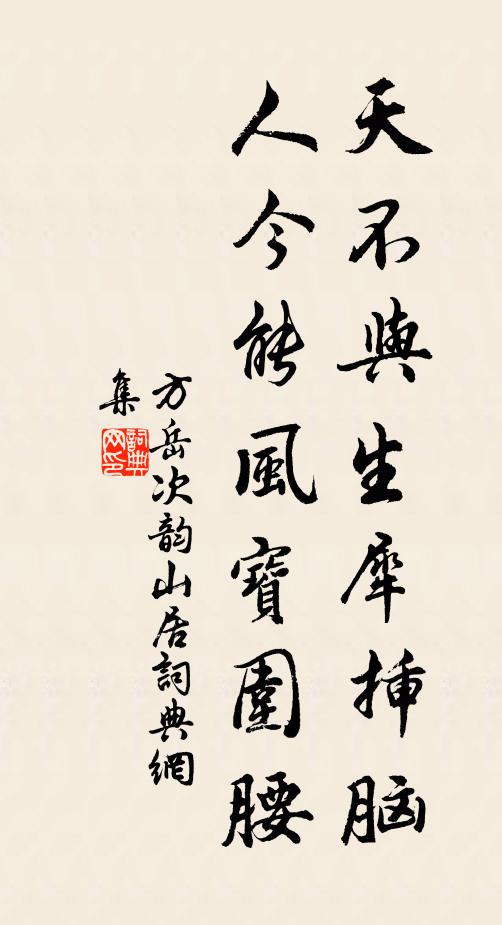 天不與生犀挿脑
人今能風寶圍腰
方岳次韵山居詞典網
集
詞典
网印